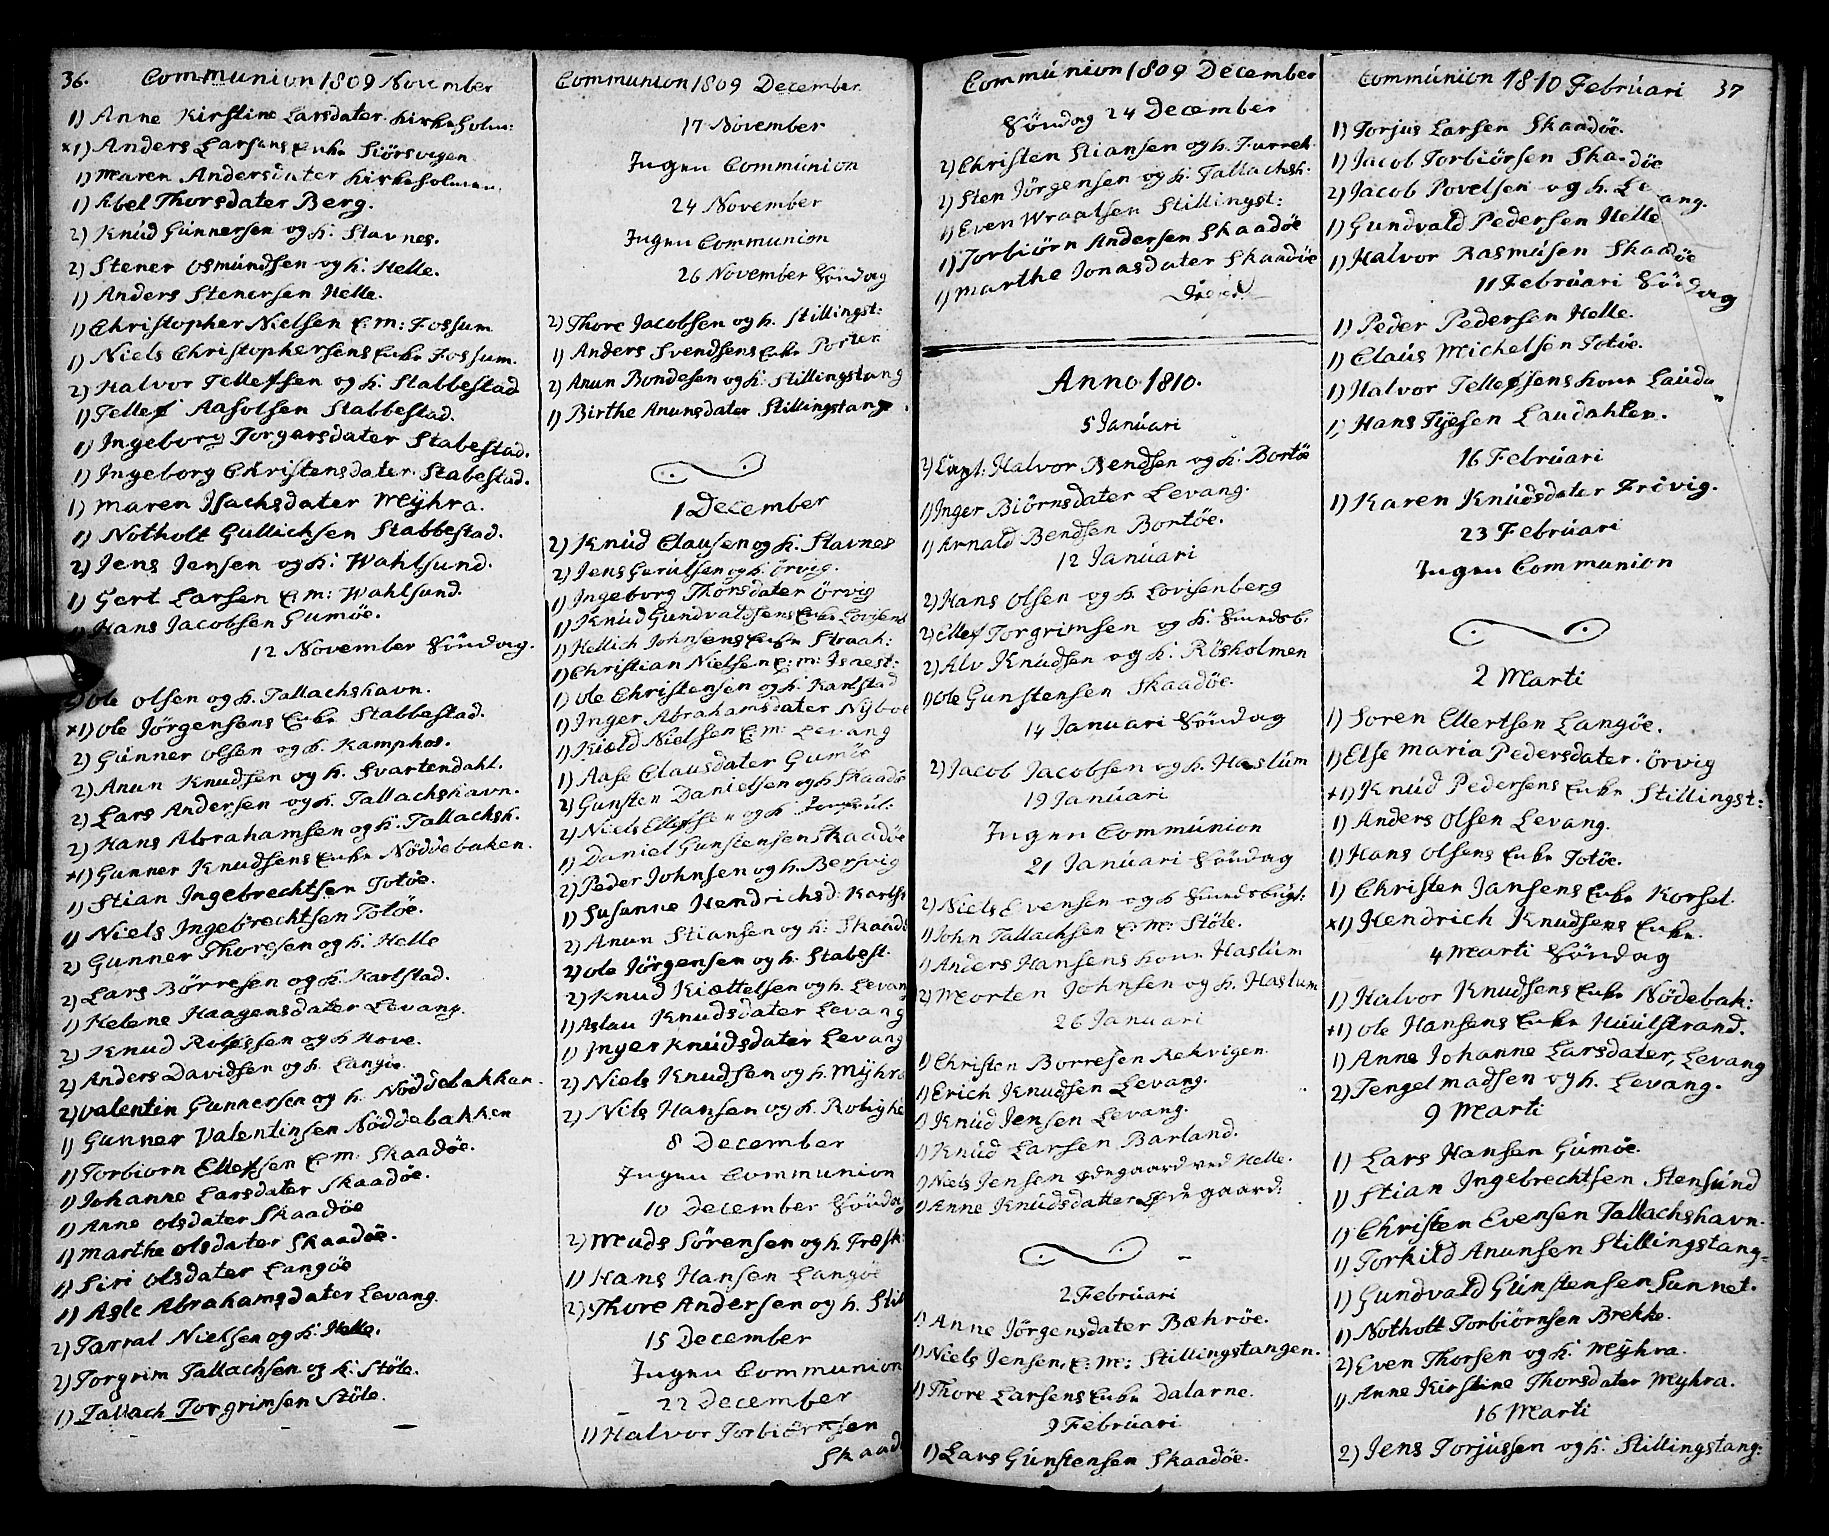 36. Communion 1809 November
1) Anne Kirstine Larsdater Kirkeholm:
×1) Anders Larsens Enke Siörsvigen
1) Maren Andersdater Kirkeholmen.
1) Abel Thorsdater Berg.
2) Knud Gunnersen og h. Stavnes.
2) Stener Osmundsen og h. Helle.
1) Anders Stenersen Helle.
1) Christopher Nielsen E: m: Fossum
1) Niels Christophersens Enke Fossum.
2) Halvor Tellefsen og h. Stabbestad
1) Tellef Aasolsen Stabbestad.
1) Ingeborg Torgersdater Stabestad.
1) Ingeborg Christensdater Stabestad.
1) Maren Isachsdater Meÿhra.
1) Notholt Gullichsen Stabbestad.
2) Jens Jensen og h: Wahlsund.
1) Gert Larsen E: m: Wahlsund.
1) Hans Jacobsen Gumöe.
12 November Söndag.
2) Ole Olsen og h. Tallachshavn.
×1) Ole Jörgensens Enke Stabbestad.
2) Gunner Olsen og h. Kamphos.
2) Anun Knudsen og h. Svartendahl.
2) Lars Andersen og h. Tallachshavn.
2) Hans Abrahamsen og h. Tallachsh.
+1) Gunner Knudsens Enke Nöddebaken.
1) Stian Ingebrechtsen Totöe.
1) Niels Ingebrechtsen Totöe.
2) Gunner Thoresen og h. Helle
2) Lars Börresen og h. Karlstad.
1) Helene Haagensdater Levang.
2) Knud Rolfssen og h Hove.
2) Anders Davidsen og h. Langöe.
2) Valentin Gunnersen og h. Nöddebakken.
1) Gunner Valentinsen Nöddebakken
1) Torbiorn Ellefsen E: m: Skaadöe.
1) Johanne Larsdater Skaadöe.
1) Anne Olsdater Skaadöe
1) Marthe Olsdater Skaadöe.
1) Siri Olsdater Langöe
1) Asle Abrahamsdater Levang.
2) Tarral Nielsen og h. Helle.
2) Torgrim Tallachsen og h: Stöle.
1) Tallach Torgrimsen Stöle.
Communion 1809 December
17 November
Ingen Communion
24 November
Ingen Communion
26 November Söndag
2) Thore Jacobsen og h. Stillingst:
1) Anders Svendsens Enke Porter
2) Anun Bondesen og h: Stillingstang
1) Birthe Anunsdater Stillingstang.
1 December
2) Knud Clausen og h. Stavnes
2) Jens Gerulsen og h. Örvig.
1) Ingeborg Thorsdater Örvig
1) Knud Gundvaldsens Enke Lovisenb
1) Hellich Johnsens Enke Straah:
1) Christian Nielsen E: m: Isaest:
1) Ole Christensen og h. Karlstad
1) Inger Abrahamsdater Nyboe
1) Kiæld Nielsen E: m: Levang
1) Aase Clausdater Gumöe
2) Gunsten Danielsen og h Skaadö
2) Niels Ellefsen og h
1) Daniel Gunstensen Skaadöe
2) Peder Johnsen og h. Bersvig
1) Susanne Hendrichsd: Karlst
2) Anun Stiansen og h: Skaadö
2) Ole Jörgensen og h: Stabest.
2) Knud Kiættelsen og h. Levang
1) Aslau Knudsdater Levang
1) Inger Knudsdater Levang
2) Niels Knudsen og h. Mÿhra
2) Nils Hansen og h. Rolighe
8 December
Ingen Communion
10 December Söndag
2) Mads Sörensen og h. Træsk:
1) Hans Hansen Langöe
2) Thore Andersen og h. Stil
15 December
Ingen Communion
22 December
1) Halvor Torbiörnsen
Skaadö
Communion 1809 December
Söndag 24 December
2) Christen Stiansen og h. Furreh.
2) Sten Jörgensen og h: Tallachsh.
1) Even Wraalsen Stillingst:
1) Torbiörn Andersen Skaadöe
1) Marthe Jonasdater Skaadöe
Anno 1810.
5 Januari
2) Havor Bendsen og h. Bortöe
1) Inger Biörnsdater Levang.
1) Arnald Bendsen Bortöe.
12 Januari
2) Hans Olsen og h. Lovisenberg
2) Ellef Torgrimsen og h. Sundsb.
2) Alv Knudsen og h. Rösholmen
1) Ole Gunstensen Skaadöe.
14 Januari Söndag
2) Jacob Jacobsen og h. Haslum
19 Januari
Ingen Communion
21 Januari Söndag
2) Niels Evensen og h
1) John Tallachsen E: m: Stöle.
1) Anders Hansens kone Haslum
2) Morten Johnsen og h. Haslum
26 Januari
1) Christen Borresen Rekvigen.
1) Erich Knudsen Levang.
1) Knud Jensen Levang.
1) Knud Larsen Barland.
1) Niels Jensen Ödegaard ved Helle.
1) Anne Knudsdatter Ödegaard:
2 Februari
1) Anne Jörgensdater Bæhröe.
1) Niels Jensen, E: m: Stillingstangen.
1) Thore Larsens Enke Dalarne.
9 Februari
1) Lars Gunstensen Skaadöe.
Communion 1810 Februari 37
1) Torjus Larsen Skaadöe.
1) Jacob Torbiörsen Skaadöe
2) Jacob Povelsen og h. Levang.
1) Gundvald Pedersen Helle
1) Halvor Rasmusen Skaadöe
11 Februari Söndag
1) Peder Pedersen Helle.
1) Claus Michelsen Totöe.
1) Halvor Tellefsens kone Lauda
1) Hans Tÿesen Laudahlen.
16 Februari
1) Karen Knudsdater Frövig.
23 Februari
Ingen Communion
2 Marti
1) Soren Ellertsen Langöe.
1) Else Maria Pedersdater. Örvig
+1) Knud Pedersens Enke Stillingst:
1) Anders Olsen Levang.
1) Hans Olsens Enke Totöe.
1) Christen Jansens Enke Korset.
×1) Hendrich Knudsens Enke.
4 Marti Söndag
1) Halvor Knudsens Enke Nödebak:
+1) Ole Hansens Enke Huulstrand.
1) Anne Johanne Larsdater, Levang
2) Tengel Madsen og h. Levang.
9 Marti
1) Lars Hansen Gumöe.
1) Stian Ingebrechtsen Stensund
1) Christen Evensen Tallachshavn.
1) Torkild Anunsen Stillingstang-
1) Gundvald Gunstensen Sunnet.
1) Notholt Torbiörnsen Brekke.
2) Even Thorsen og h. Mÿhra.
1) Anne Kirstine Thorsdater Mÿhra.
16 Marti
2) Jens Torjussen og h. Stillingstang: